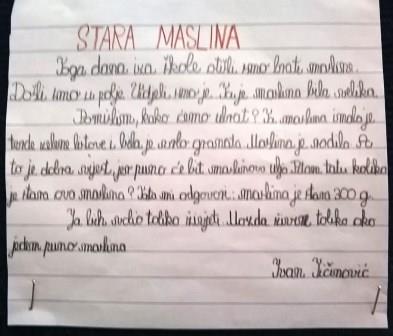 STARA MASLINA
Toga dana iza škole otišli smo brati masline.
Došli smo u polje. Vidjeli smo je. Ta je maslina bila velika.
Pomislim, kako ćemo ubrat? Ta maslina imala je
tvrde zelene listove i bila je vrlo granata. Maslina je rodila. A
to je dobra vijest, jer puno će bit maslinova ulja. Pitam tatu koliko
je stara ova maslina? Tata mi odgovori: maslina je stara 300 g.
Ja bih volio toliko živjeti. Možda živim toliko ako
jedem puno maslina
Ivan